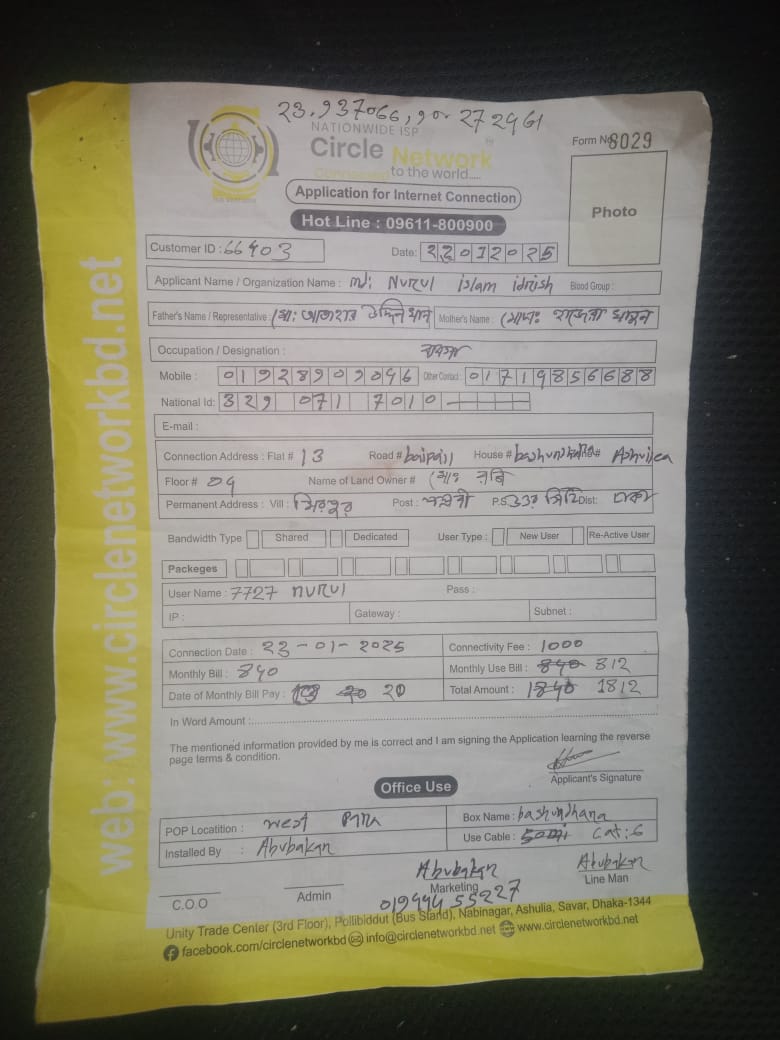 23.937066, 90.272961
NATIONWIDE ISP
Circle Network
Connected to the world.....
Form No 8029
Application for Internet Connection
Photo
Hot Line : 09611-800900
Customer ID : 66903
Date: 22012025
Applicant Name / Organization Name : md: NURUl islam idrish Blood Group :
Father's Name / Representative : মো: আজহার উদ্দিন খান Mother's Name : মোসাঃ হাজেরা খাতুন
Occupation / Designation :
Mobile : 01928909096 Other Contact : 01719856688
National Id: 329 071 7010
E-mail :
Connection Address : Flat # 13 Road # baipail House # bashundhara Ashulia
Floor # 09 Name of Land Owner # মোঃ নবি
Permanent Address : Vill : মিরপুর Post : P.S: Dist: ঢাকা
Bandwidth Type Shared Dedicated User Type : New User Re-Active User
Packeges
User Name : 7727 NURUl Pass :
IP : Gateway : Subnet :
Connection Date : 23-01-2025 Connectivity Fee : 1000
Monthly Bill : 840 Monthly Use Bill : 840 812
Date of Monthly Bill Pay : 20 20 Total Amount : 1840 1812
In Word Amount :
The mentioned information provided by me is correct and I am signing the Application learning the reverse
page terms & condition.
Applicant's Signature
Office Use
POP Locatition : west Para Box Name : bashundhana
Installed By : Abubakar Use Cable : Cat:6
Abubakar Abubakar
C.O.O Admin Marketing Line Man
01944455227
Unity Trade Center (3rd Floor), Pollibiddut (Bus Stand), Nabinagar, Ashulia, Savar, Dhaka-1344
facebook.com/circlenetworkbd info@circlenetworkbd.net www.circlenetworkbd.net
web: www.circlenetworkbd.net